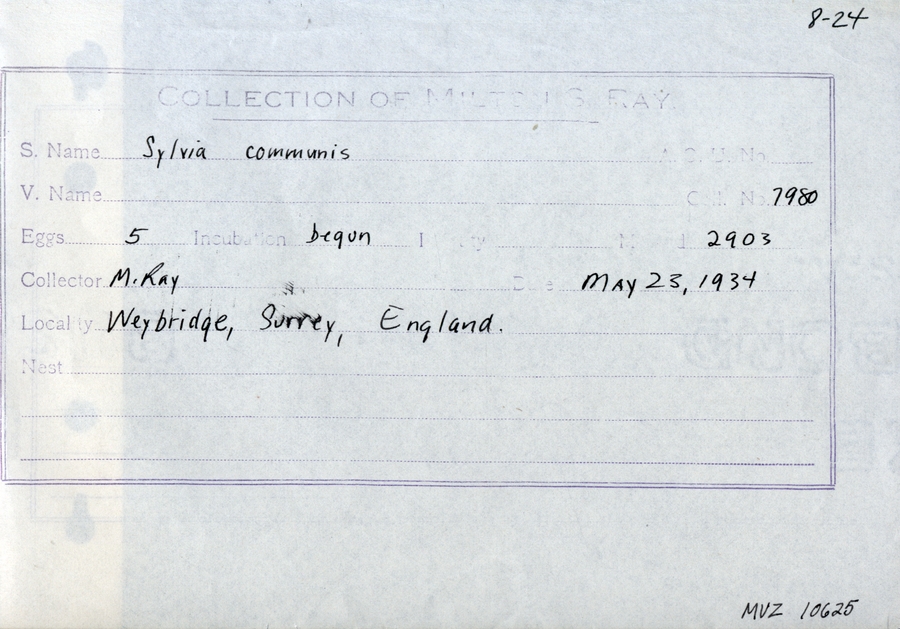 8-24
COLLECTION OF MILTON S. RAY.
S. Name Sylvia communis A. O. U. No.
V. Name Coll. No. 7980
Eggs 5 Incubation begun Identity 2903
Collector M. Ray Date May 23, 1934
Locality Weybridge, Surrey, England.
Nest
MVZ 10625